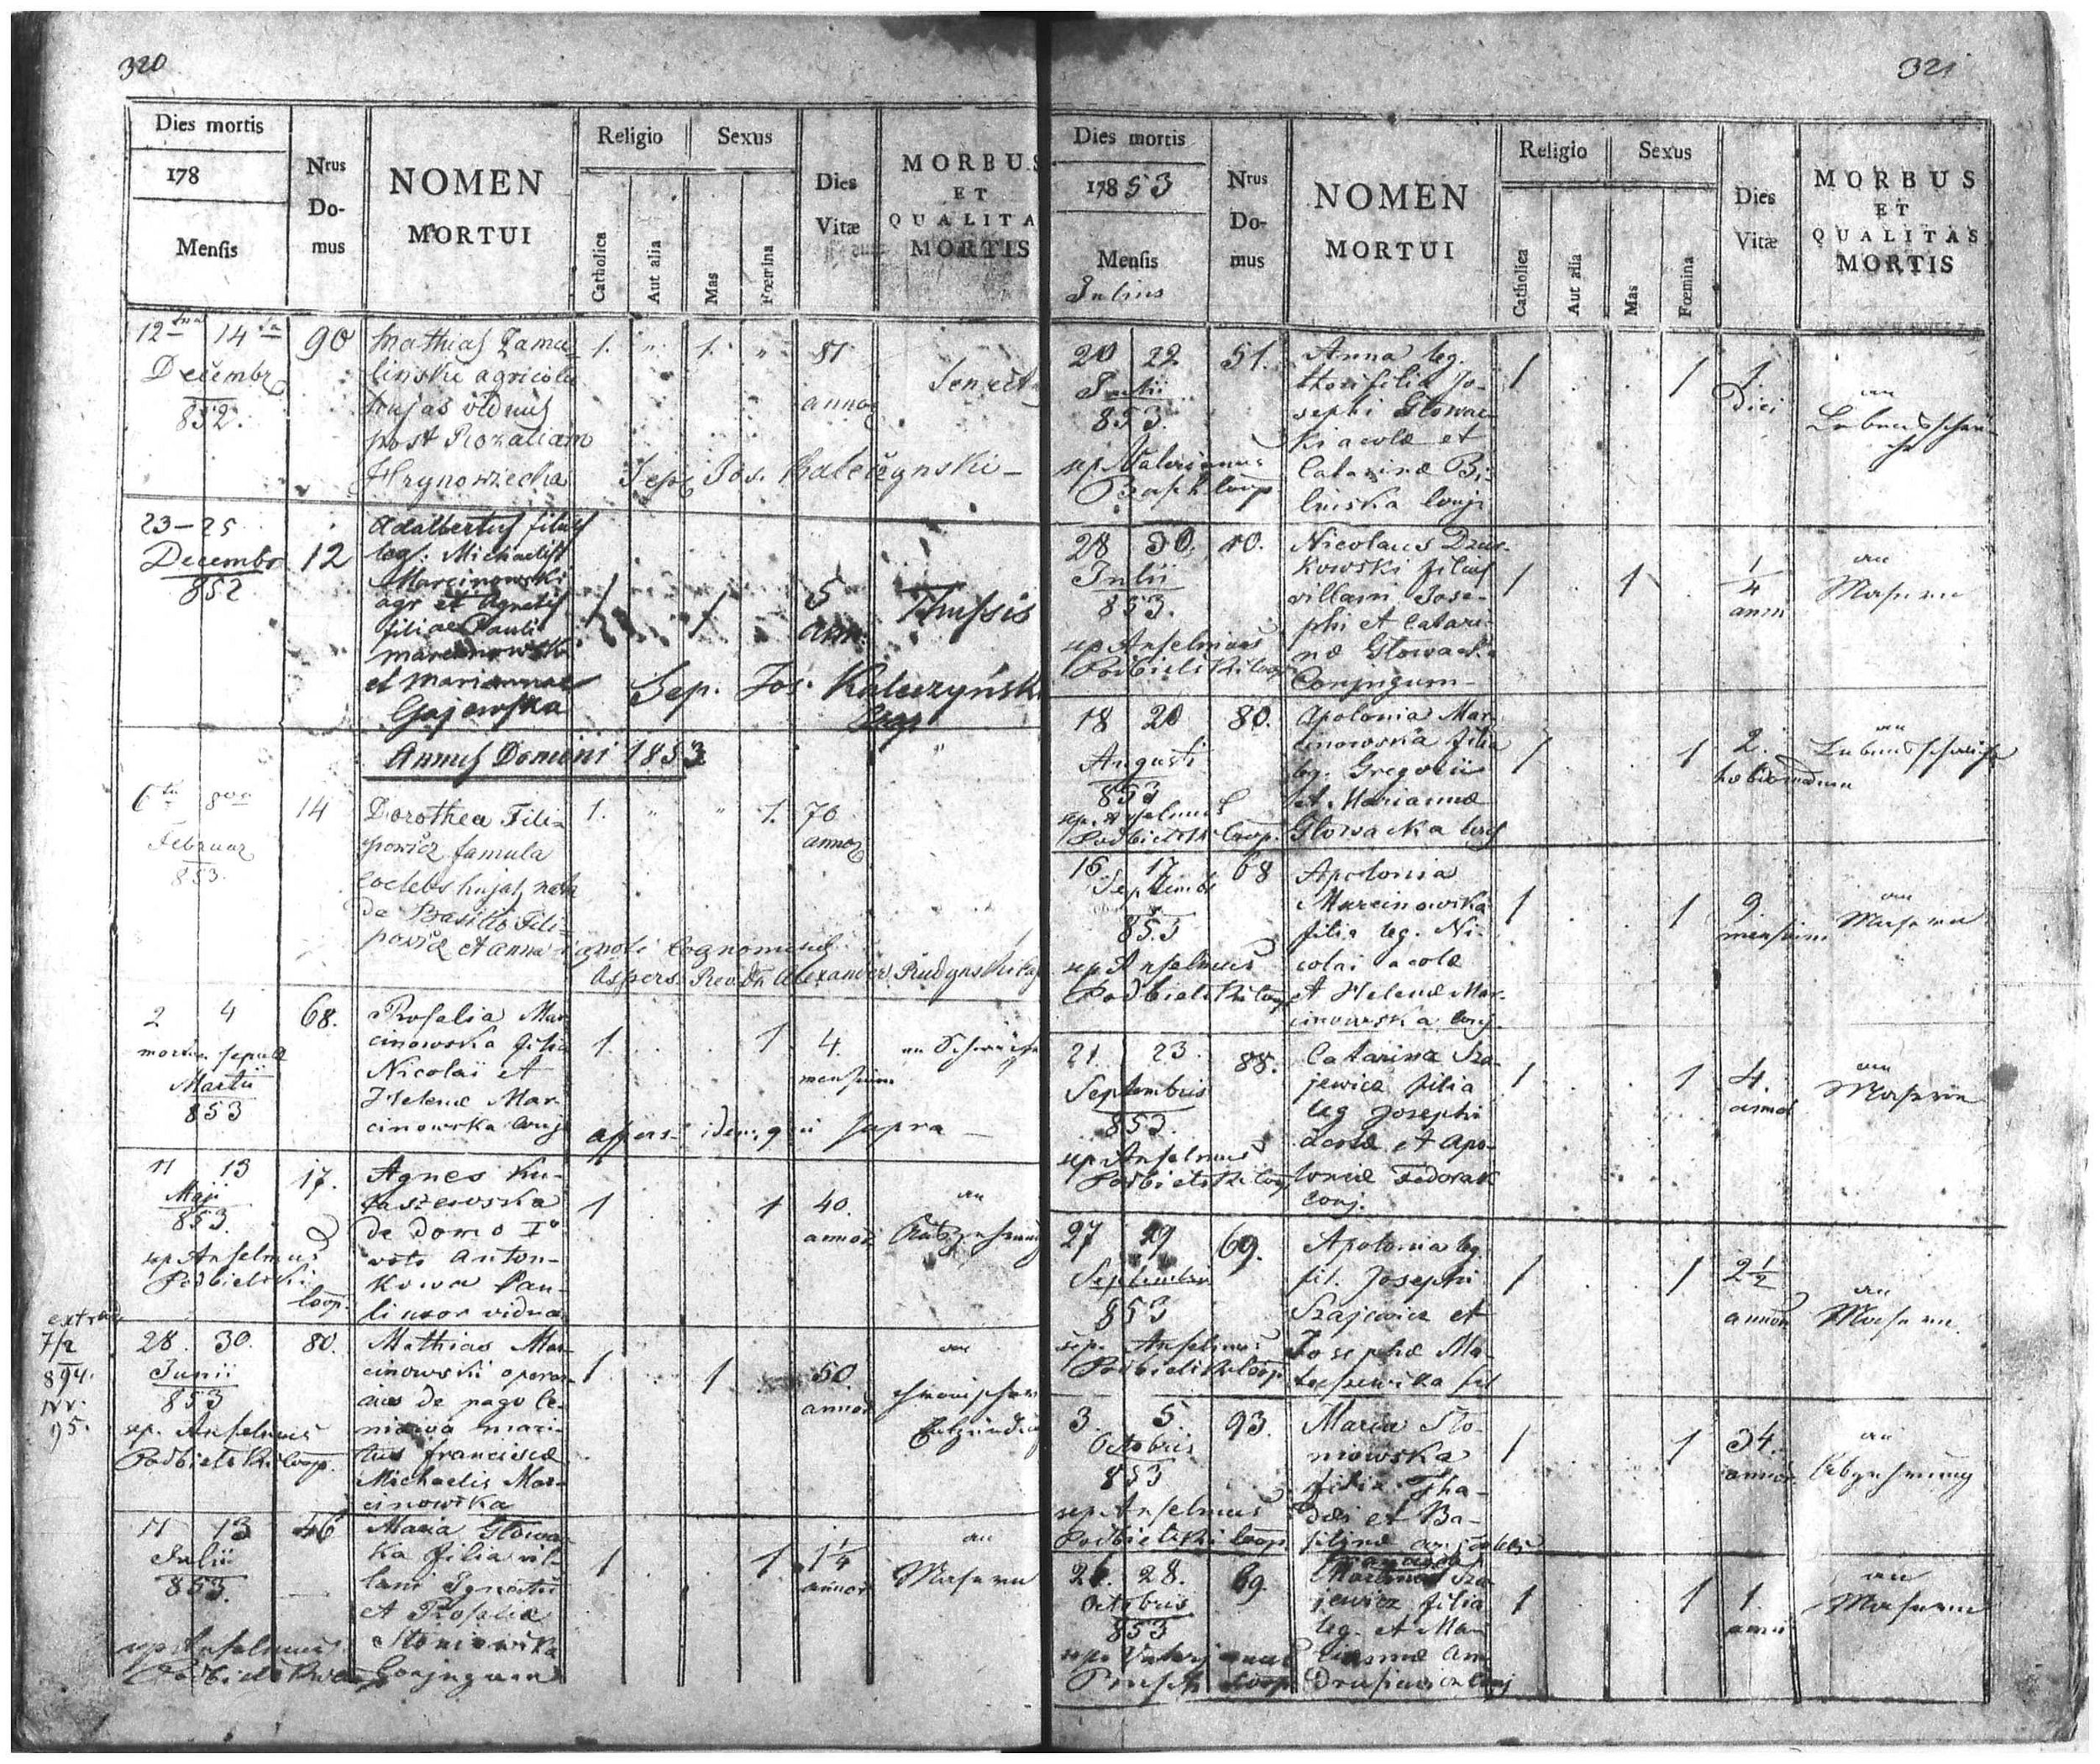 320
Dies mortis
178
Mensis
Nrus
Do-
mus
NOMEN
MORTUI
Religio
Sexus
Catholica
Aut alia
Mas
Fœmina
Dies
Vitæ
MORBUS
ET
QUALITA
MORTIS
12 14 90
Decembr
852.
Mathias Zama
linski agricola
hujas viduus
post Rozaliam
Hrynowiecka
1. " 1. "
81
annor
Senect
Sep. Jos. Kaleczynski
23-25
Decembr 12
852
Adalbertus filius
leg. Michaelis
Marcinowski
agr et Agnetis
filiae Pauli
Marcinowski
et Mariannae
Gajewska
1 1
5
ann.
Thussis
Sep. Jos. Kaleczyński
Annus Domini 1853
6 8 14
Februar
853.
Dorothea Fili=
powicz famula
coelebs hujas nata
de Basilio Fili=
powicz et Anna ignoti cognominis
1. " " 1. 70
annor
Aspers. Revdus Alexander Rudynski
2 4 68.
mortua sepulta
Martii
853
Rosalia Mar
cinowska filia
Nicolai et
Helenæ Mar-
cinowska conj
1. 1 4.
mensium
aspers. idem qui supra
11 13 17.
Maji
853.
sep Anselmus
Podbielski
coop.
Agnes Ku-
raszewska
de domo I°
voto Anton-
kowa Pau-
li uxor vidua
1 1 40.
annor
an
Abzehrung
extrad.
7/2
894.
Nr.
95.
28. 30. 80.
Junii
853
sep. Anselmus
Podbielski coop.
Mathias Mar-
cinowski opera-
rius de pago
mari-
tus Franciscæ
Michaelis Mar-
cinowska
1 1 50.
annor
an
chronischer
Entzündung
11 13 46
Julii
853.
sep Anselmus
Podbielski coop
Maria Głowac
ka filia vil-
lani Ignatii
et Rosaliæ
Słoniowska
Conjugum
1 1 1¼
annor
an
Masern
321
Dies mortis
17853
Mensis
Julius
Nrus
Do-
mus
NOMEN
MORTUI
Religio
Sexus
Catholica
Aut alia
Mas
Fœmina
Dies
Vitæ
MORBUS
ET
QUALITAS
MORTIS
20 22 51.
Julii
853.
sep. Valerianus
coop
Anna leg.
thori filia Jo-
sephi Głowac
ki acolæ et
Catarinæ Bi-
linska conj
1 1 1
Diei
an
Lebensschwä-
che
28 30. 10.
Julii
853.
sep Anselmus
Podbielski coop
Nicolaus Dzur-
kowski filius
villani Jose-
phi et Catari-
næ Głowacka
Conjugum
1 1 ¼
anni
an
Masern
18 20 80.
Augusti
853
sep. Anselmus
Podbielski coop.
Apolonia Mar
cinowska filia
leg. Gregorii
et Mariannæ
Głowacka conj
1 1 2.
hebdomadum
an
Lebensschwäche
16. 17 68
Septembr
853
sep Anselmus
Podbielski coop
Apolonia
Marcinowska
filia leg. Ni-
colai acolæ
et Helenæ Mar-
cinowska conj.
1 1 9
mensium
an
Masern
21. 23. 88.
Septembris
853.
sep Anselmus
Podbielski coop
Catarina Sza-
jewicz filia
leg Josephi
et Apo-
loniæ Fedorak
conj.
1 1 4.
annor
an
Masern
27 29 69.
Septembris
853
sep. Anselmus
Podbielski coop
Apolonia leg.
fil. Josephi
Szajewicz et
Josephæ Ma-
1 1 2½
annor
an
Masern.
3. 5. 93.
Octobris
853
sep. Anselmus
Podbielski coop
Maria Sło-
niowska
filia Tha-
dei et Ba-
1 1 34.
annor
an
Abzehrung
26. 28. 69.
Octobris
853
coop
Sza
jewicz filia
leg. et Mari
annæ An
drusiewicz conj
1 1 1.
anni
an
Masern